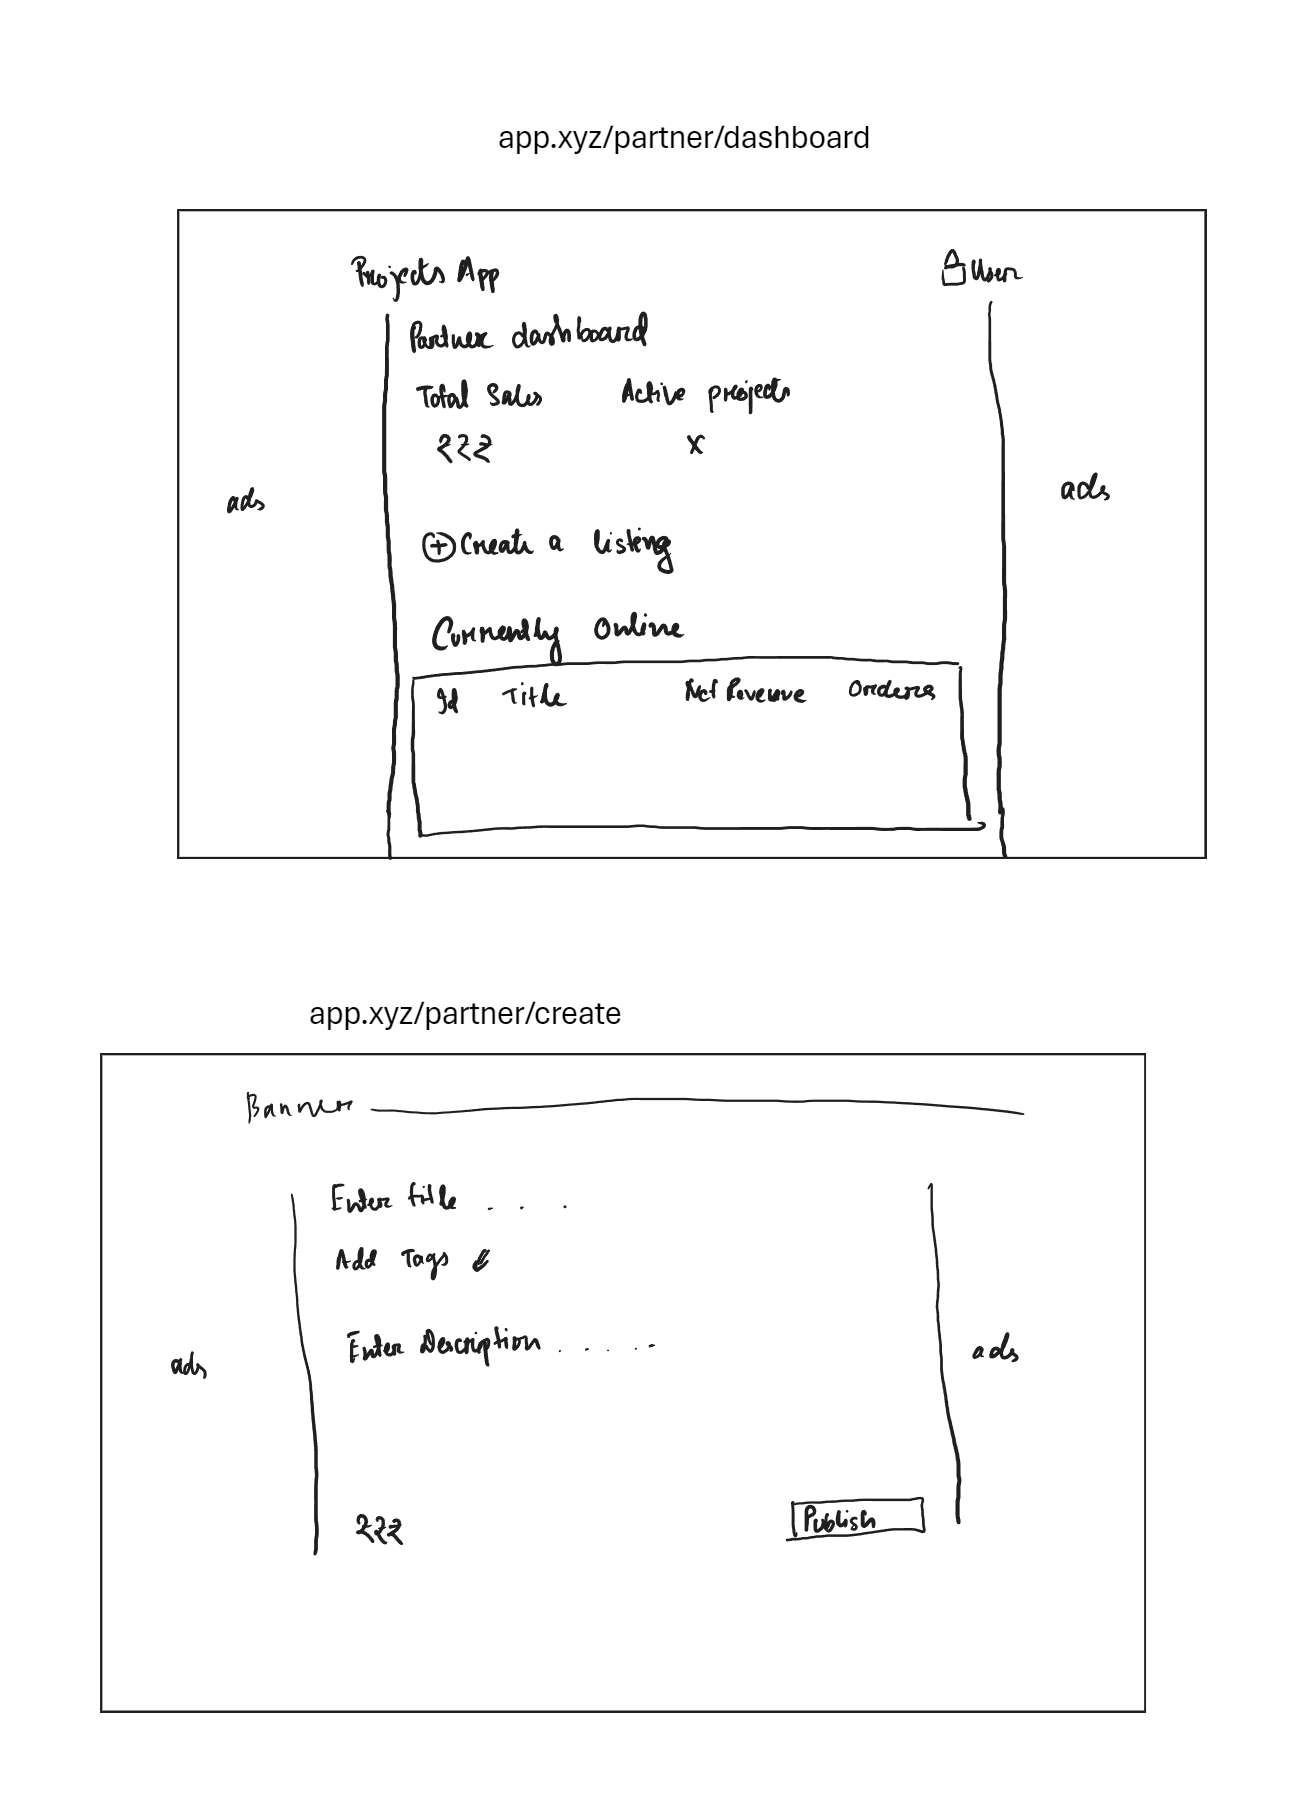 app.xyz/partner/dashboard
Projects App User
Partner dashboard
Total Sales Active projects
₹₹₹ x
ads ads
Create a listing
Currently Online
Id Title Net Revenue Orders
app.xyz/partner/create
Banner
Enter title . . .
Add Tags
Enter Description . . . . .
ads ads
₹₹₹ Publish